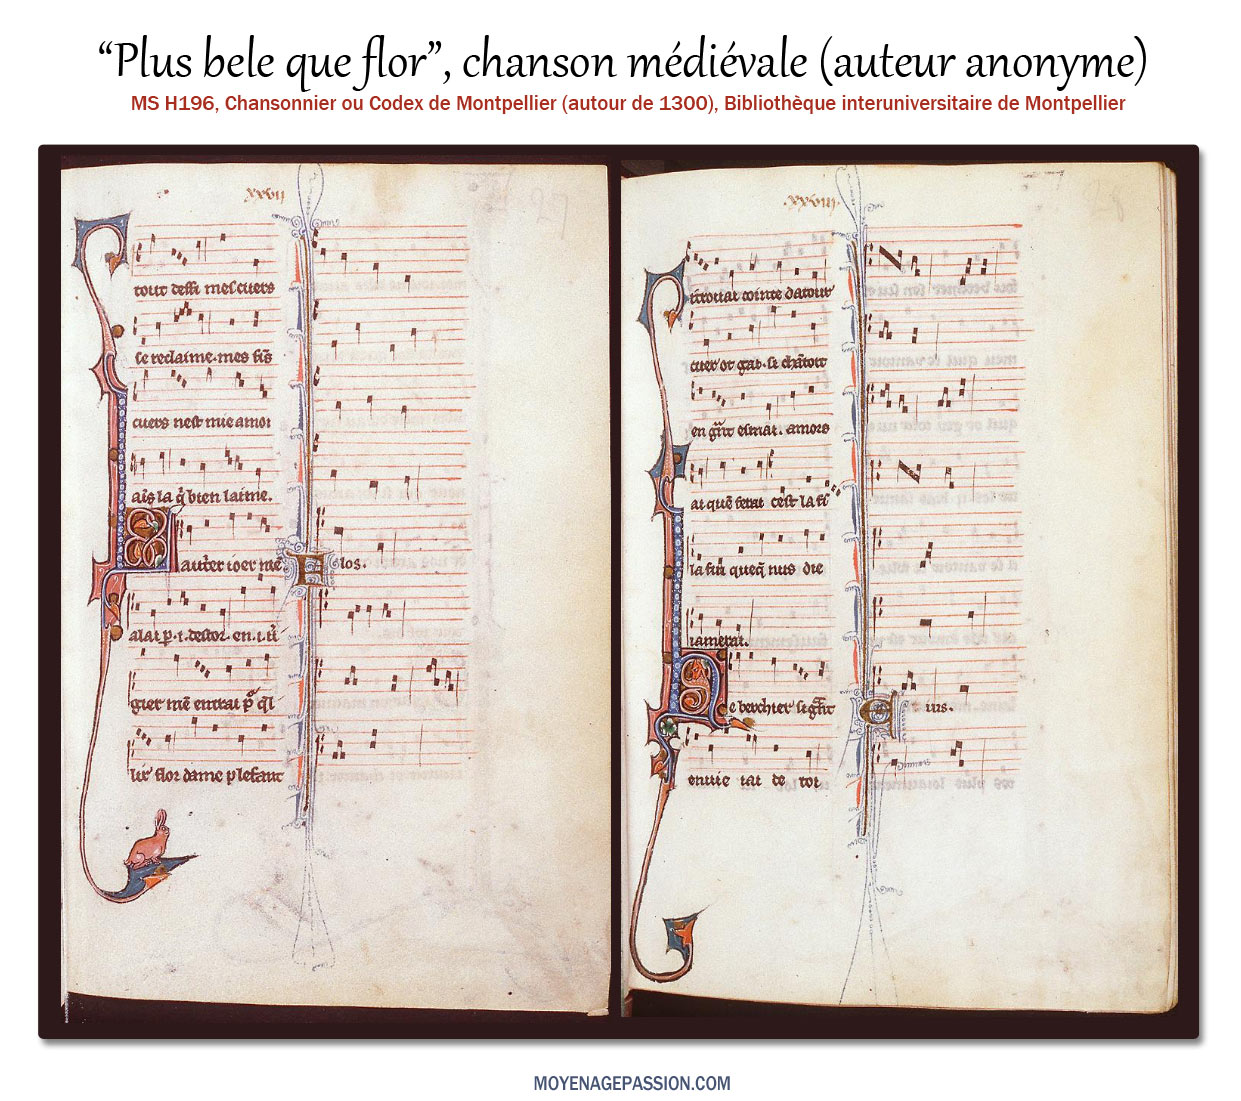 “Plus bele que flor”, chanson médiévale (auteur anonyme)
MS H196, Chansonnier ou Codex de Montpellier (autour de 1300), Bibliothèque interuniversitaire de Montpellier
xxvii
tout deffi mes cuers
se reclaime. mes fis
cuers nest mie a moi
ains la q̃ bien laime.
L autrer ioer mẽ
alai p. i. destor. en. i. u
gier mẽ entrai p
lir flor dame plesant
los.
xxviii
trouai cointe datour
cuer ot gai. si chãtoit
en grãt esmai. amors
ai que ferai cest la fi
la fin queq̃ nus die
iamerai.
e berchier si grãt
enuie iai de toi
ius.
MOYENAGEPASSION.COM